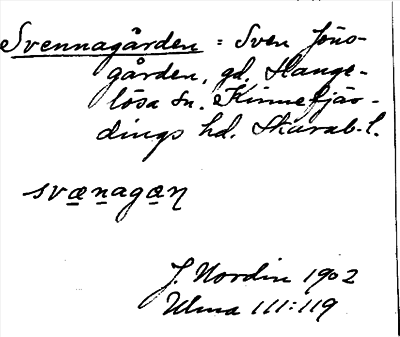 Svennagården = Sven Jöns-
gården, gd, Hange-
lösa sn. Kinnefjär-
dings hd. Skarab. l.
svænagæn
J. Nordin 1902
Ulma 111:119